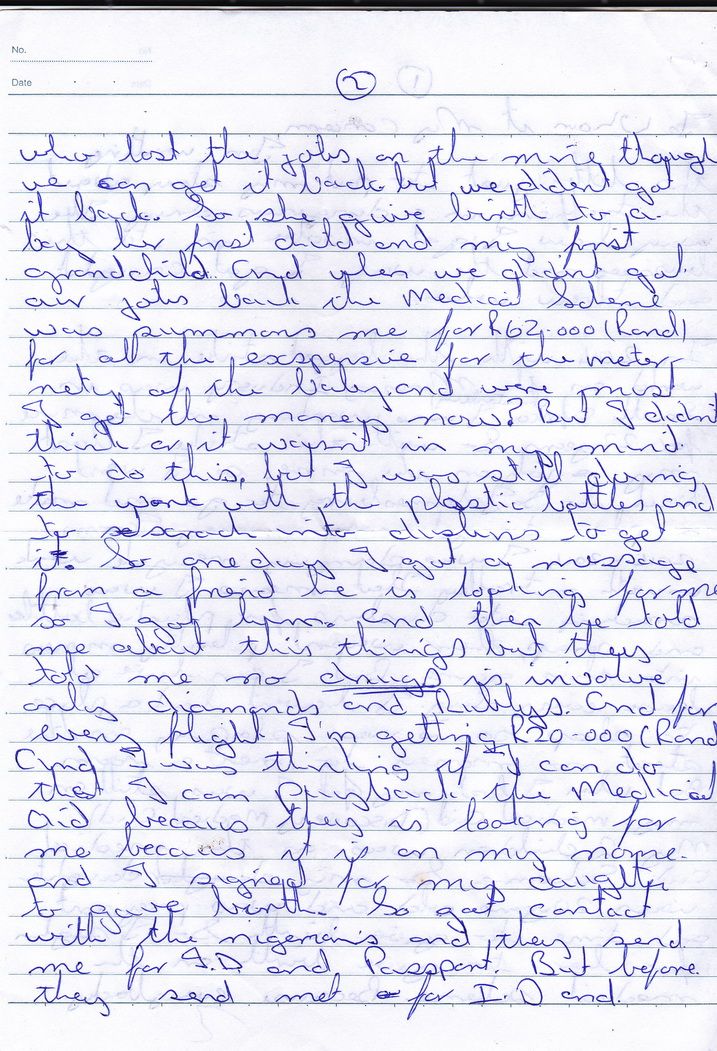 No.
Date
2
who lost the jobs on the mine though
we can get it back but we dident got
it back. So she give birth to a
boy her first child and my first
grandchild. And when we didnt got
our jobs back the Medical Scheme
was summons me for R62.000 (Rand)
for all the exspensive for the meter,
nety of the baby, and were must
I get the moneys now? But I didnt
think or it wasn't in my mind
to do this, but I was still during
the work with the plastic bottles, and
to serach into disbins to get
it. So one day I got a message
from a friend he is looking for me
so I got him. And then he told
me about this things but they
told me no drugs is involve
only diamonds and Rubbys. And for
every flight I'm getting R20-000 (Rand
And I was thinking if I can do
that I can payback the Medical
Aid becaus they is looking for
me becaus it is on my name.
and I signed for my daughter
to gave birth. So got contact
with the nigerian's and they send
me for I.D and Passport. But before
they send met for I.D and.